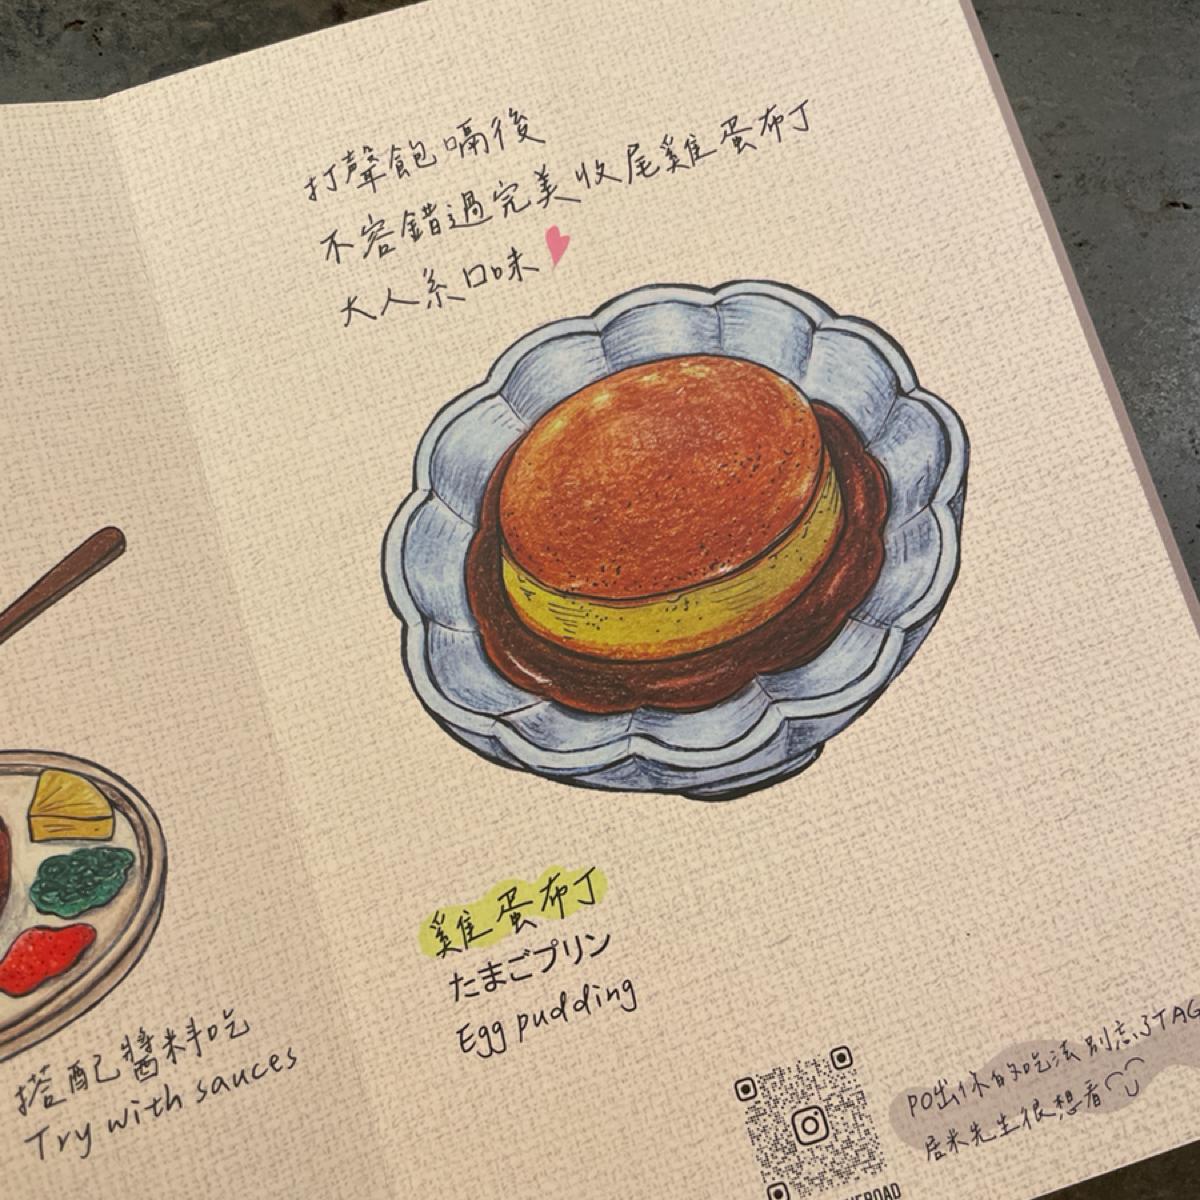 打聲飽嗝後
不容錯過完美收尾雞蛋布丁
大人系口味
雞蛋布丁
たまごプリン
Egg pudding
搭配醬料吃
Try with sauces
PO出你的吃法 別忘了TAG
居米先生很想看